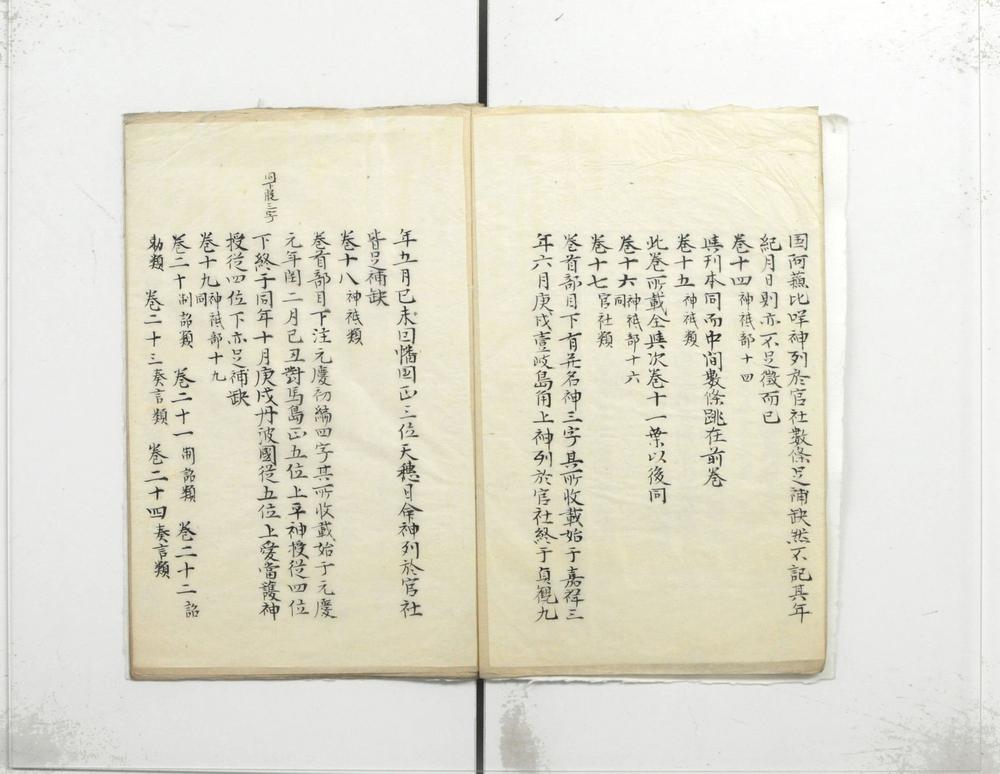 国阿蘓比咩神列於官社数條足補缺然不記其年
紀月日則亦不足徴而已
巻十四 神祇部十四
与刊本同而中间数條跳在前巻
巻十五 神祇類
此巻所載全与次巻十一葉以後同
巻十六 神祇部十六 同
巻十七 官社類
巻首部目下有并名神三字其所收載始于嘉祥三
年六月庚戌壹岐島角上神列於官社終于貞観九
年五月已未因幡国正三位天穂日命神列於官社
皆足補缺
巻十八 神祇類
巻首部目下注元慶初編四字其所收載始于元慶
元年閏二月己丑對馬島正五位上平神授従四位
同下脱三字
下終于同年十月庚戌丹波國従五位上愛當護神
授従四位下亦足補缺
巻十九 神祇部十九 同
巻二十 制詔類 巻二十一 制詔類 巻二十二 詔
勅類 巻二十三 奏言類 巻二十四 奏言類